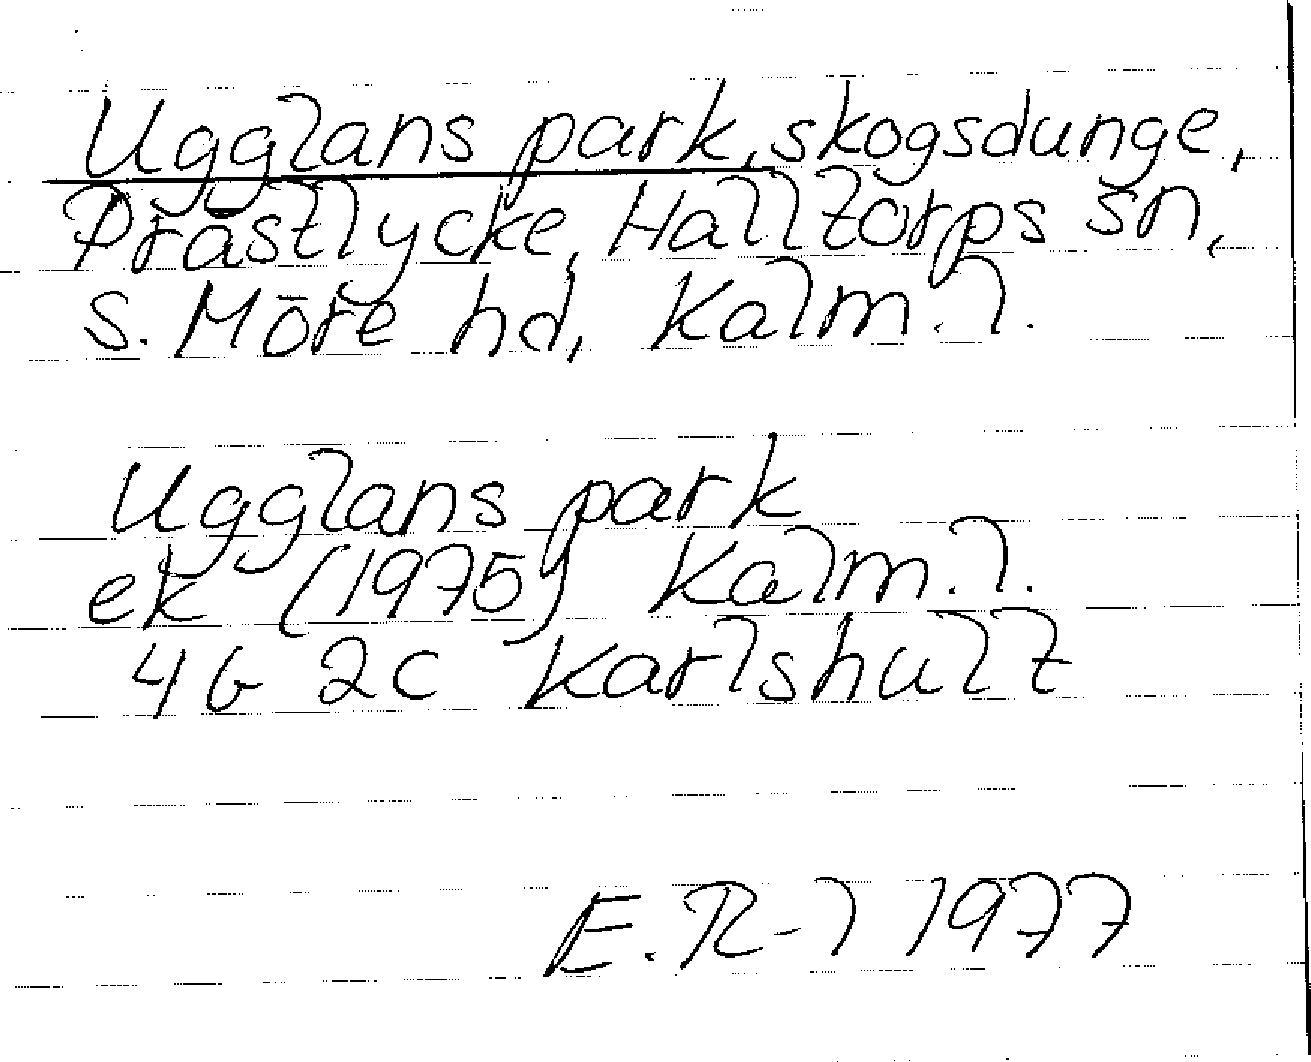 Ugglans park, skogsdunge,
Prästlycke, Halltorps sn,
S. Möre hd, Kalm. l.
Ugglans park
ek (1975) Kalm. l.
4G 2c Karlshult
E. R-l 1977